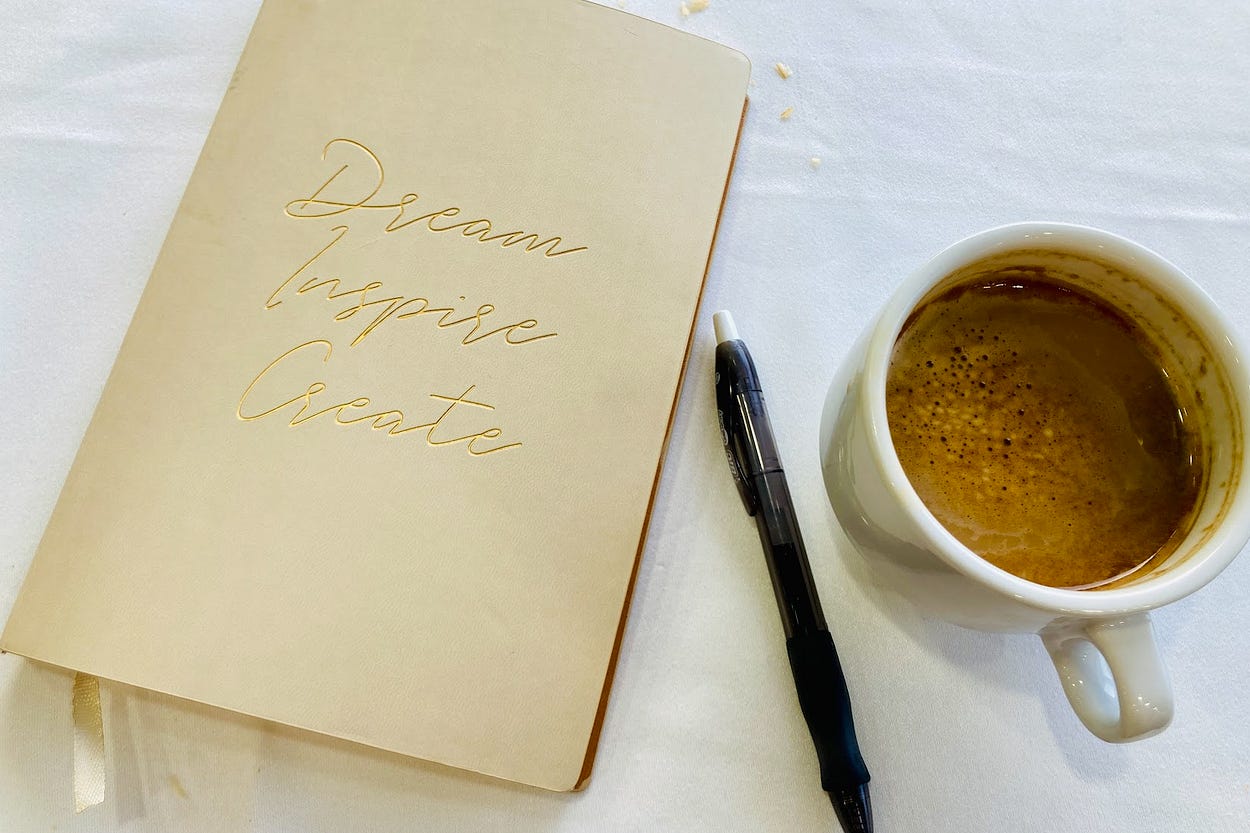 Dream
Inspire
Create